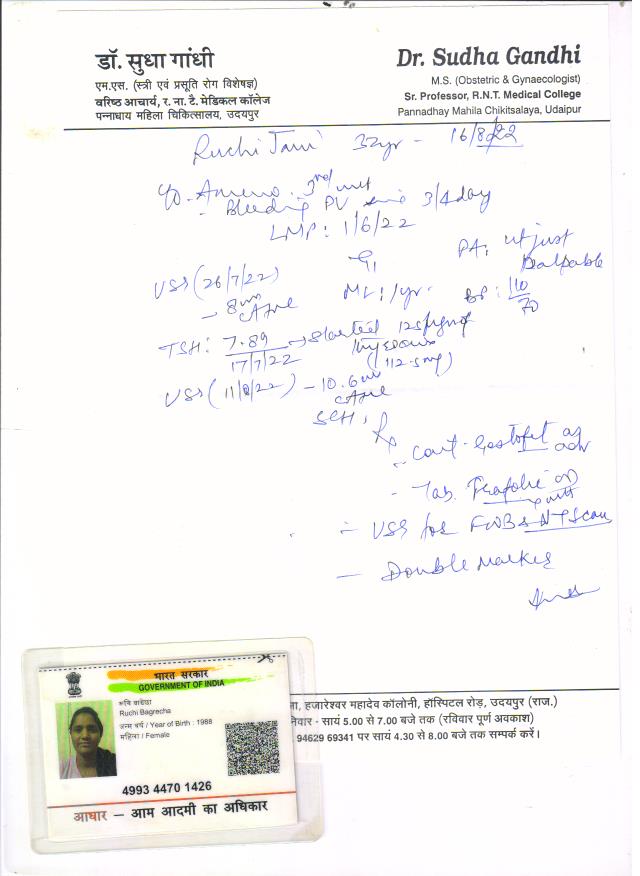 डॉ. सुधा गांधी
एम.एस. (स्त्री एवं प्रसूति रोग विशेषज्ञ)
वरिष्ठ आचार्य, र. ना. टै. मेडिकल कॉलेज
पन्नाधाय महिला चिकित्सालय, उदयपुर
Dr. Sudha Gandhi
M.S. (Obstetric & Gynaecologist)
Sr. Professor, R.N.T. Medical College
Pannadhay Mahila Chikitsalaya, Udaipur
Ruchi Jain 32yr - 16/8/22
Ameno. 3rd mth
- Bleeding PV 3/4 day
LMP: 1/6/22
G1
PA: ut just palpable
USS (26/7/22)
- 8
ML: 1 yr.
BP: 110/70
TSH: 7.89 → started
17/7/22
USS (11/8/22) - 10.6
SCH
Rx
- Cont.
- Tab.
- USS for FWB & NT Scan
- Double Marker
भारत सरकार
GOVERNMENT OF INDIA
Ruchi Bagrecha
जन्म वर्ष / Year of Birth : 1988
महिला / Female
4993 4470 1426
आधार – आम आदमी का अधिकार
हजारेश्वर महादेव कॉलोनी, हॉस्पिटल रोड़, उदयपुर (राज.)
सायं 5.00 से 7.00 बजे तक (रविवार पूर्ण अवकाश)
94629 69341 पर सायं 4.30 से 8.00 बजे तक सम्पर्क करें।